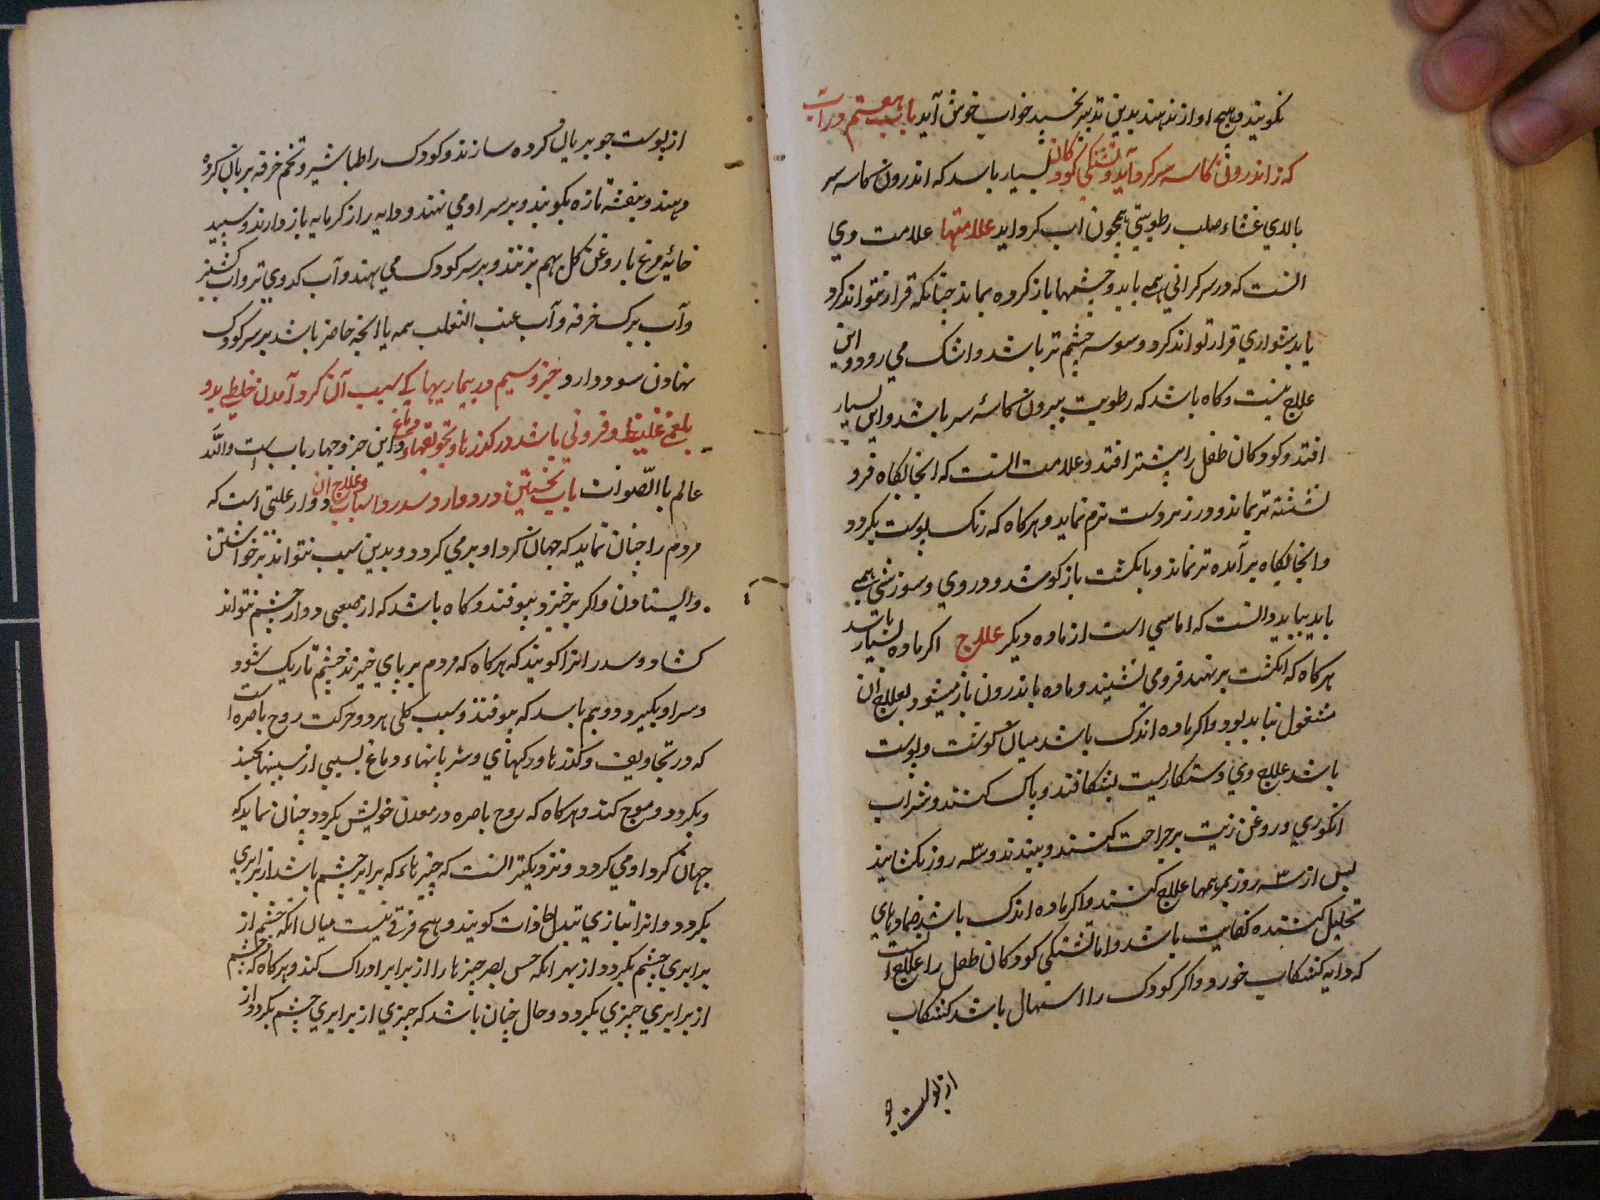 نکویند و هیچ اواز ندهند بدین تدبیر بخسپد خواب خوش آید باب هفتم در آب
که زاندرون کاسه سر کرد آید و تشنکی کودکان بسیار باشد که اندرون کاسه سر
بالای غشاء صلب رطوبتی همچون آب کرد اید علامتها علامت وی
انست که در سر کرانی همی یابد و چشمها باز کرده بماند چنانکه فراز نتواند کرد
یا بدشواری فراز تواند کرد و موسه چشم تر باشد و اشک می رود و این
علاج نیست و کاه باشد که رطوبت بیرون کاسه سر باشد و این بسیار
افتد و کودکان طفل را بیشتر افتد و علامت انست که انجایکاه فرو
نشسته تر نماند و در زیر دست نرم نماید و هرکاه که رنک پوست بکردد
و انجایکاه بر آمده تر نماند و بانکشت باز کوشد و در وی و سوزشی همی
یابد بباید دانست که اماسی است از ماده دیکر علاج اکر ماده بسیار باشد
هرکاه که انکشت بر نهند فرو می نشیند و ماده باندرون باز میشود بعلاج ان
مشغول نباید بود و اکر ماده اندک باشد میان کوشت و پوست
باشد علاج وی دستکاریست بشکافند و پاک کنند و شراب
انکوری و روغن زیت بر جراحت کنند و ببندند و سه روز نکشایند
پس از سه روز بمرهمها علاج کنند و اکر ماده اندک باشد ضمادهای
تحلیل کننده کفایت باشد و اما تشنکی کودکان طفل را علاج انست
که دایه کشکاب خورد و اکر کودک را اسهال باشد کشکاب
از پوست جو
از پوست جو بریان کرده سازند و کودک را طباشیر و تخم خرفه بریان کرده
دهند و بنفشه تازه بکوبند و بر سر او می نهند و دایه را از کرمابه باز دارند و سپید
خایه مرغ با روغن کل بهم بزنند و بر سر کودک می نهند و آب کدوی تر و آب کشنیز
و آب برک خرفه و آب عنب الثعلب همه یا انچه حاضر باشد بر سر کودک
نهادن سود دارد جزو سیم در بیماریهایی که سبب آن کرد آمدن خلطی بد و
بلغمی غلیظ و فزونی باشد در کذرها و تجویفهاء دماغ و این جزو چهار باب است والله
عالم باالصواب باب نخستین در دوار و سدر و اسباب و علاج ان دوار علتی است که
مردم را چنان نماید که جهان کرد او بر می کردد و بدین سبب نتواند برخواستن
و ایستادن و اکر برخیزد بیوفتد و کاه باشد که از صعبی دوار چشم نتواند
کشاد و سدر انرا کویند که هرکاه که مردم بر پای خیزند چشم تاریک شود
و سر او بکیرد و بیم باشد که بیوفتد و سبب کلی هر دو حرکت روح باصره است
که در تجاویف و کذرها و رکهای و شریانهاء دماغ بسببی از سببها بجنبد
و بکردد و موج کند و هرکاه که روح باصره در معدن خویش بکردد چنان نماید که
جهان کرد او می کردد و نزدیکتر انست که چیزهاء که برابر چشم باشد از برابری
بکردد و انرا بتازی تبدل محاذات کویند و هیچ فرق نیست میان انکه چشم از
برابری چشم بکردد از بهر انکه حس بصر چیزها را از برابر ادراک کند و هرکاه که چشم
از برابری چیزی بکردد و حال چنان باشد که چیزی از برابری چشم بکردد از